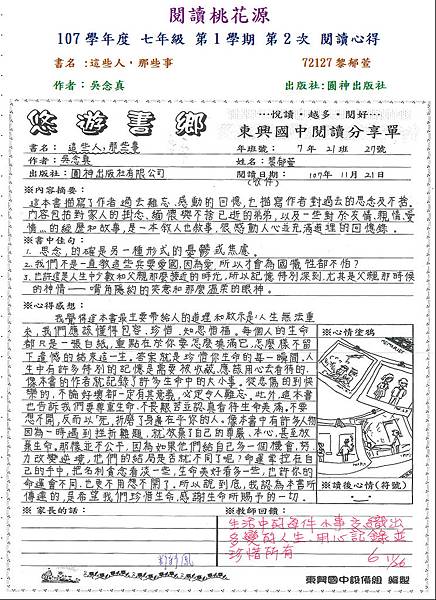 閱讀桃花源
107 學年度 七年級 第 1 學期 第 2 次 閱讀心得
書名 :這些人，那些事 72127 黎郁萱
作者 : 吳念真 出版社:圓神出版社
悠遊書鄉
…悅讀 · 越多 · 閱好…
東興國中閱讀分享單
書名: 這些人，那些事 年班號: 7 年 21 班 27號
作者: 吳念真 姓名: 黎郁萱
出版社: 圓神出版社有限公司 閱讀日期: 107年 11月 21日
※內容摘要:
這本書描寫了作者過去難忘、感動的回憶，也描寫作者對過去的思念及不捨。
內容包括對家人的掛念、緬懷與不捨已逝的弟弟，以及一些對於友情、親情、愛
情…的經歷和故事，是一本敘人也敘事，很感動人心並充滿道理的回憶錄。
※書中佳句:
1. 思念，的確是另一種方式的憂鬱或焦慮。
2. 我們不是一直教這些兵要愛國，因為愛，所以才會為國犧牲都不怕?
3. 也許這是人生中少數和父親那麼接近的時光，所以記憶特別深刻，尤其是父親那時候
的神情——嘴角隱約的笑意和那麼溫柔的眼神。
※心得感想:
我覺得這本書最主要帶給人的道理和啟示是:人生無法重
來，我們應該懂得包容、珍惜，知恩惜福。每個人的生命
都只是一張白紙，重點在於你要怎麼填滿它，怎麼樣不留
下遺憾的結束這一生。答案就是珍惜你生命的每一瞬間。人
生中有許多特別的記憶是需要被收藏，應該用心去看待的。
像本書的作者就記錄了許多生命中的大小事。從悲傷的到快
樂的，不論好壞都一定有其意義，必定令人難忘。此外，這本書
也告訴我們要尊重生命，不長敵苦並認真看待生命美滿。不要
想不開，反而以"死"折磨了身邊在乎你的人。像本書中有許多人物
因為一時遇到挫折難題，就放棄了自己的尊嚴、本心，甚至放
棄生命。那樣並不公平，因為如果他們給自己多一個機會，努
力改變逆境，他們的結局是否就不同了呢?命運掌控在自
己的手中，把名利貪念看淡一些，生命美好看多一些，也許你的
命運會不同，也更不用想不開了。所以說到底，我認為本書所
傳達的，是希望我們珍惜生命，感謝生命所賜予的一切。
※心情塗鴉
※讀後心情(符號)
※家長的話: ※教師回饋:
生活中的每件小事交織出
多變的人生，用心記錄並
珍惜所有 6 11/26
東興國中設備組 編製